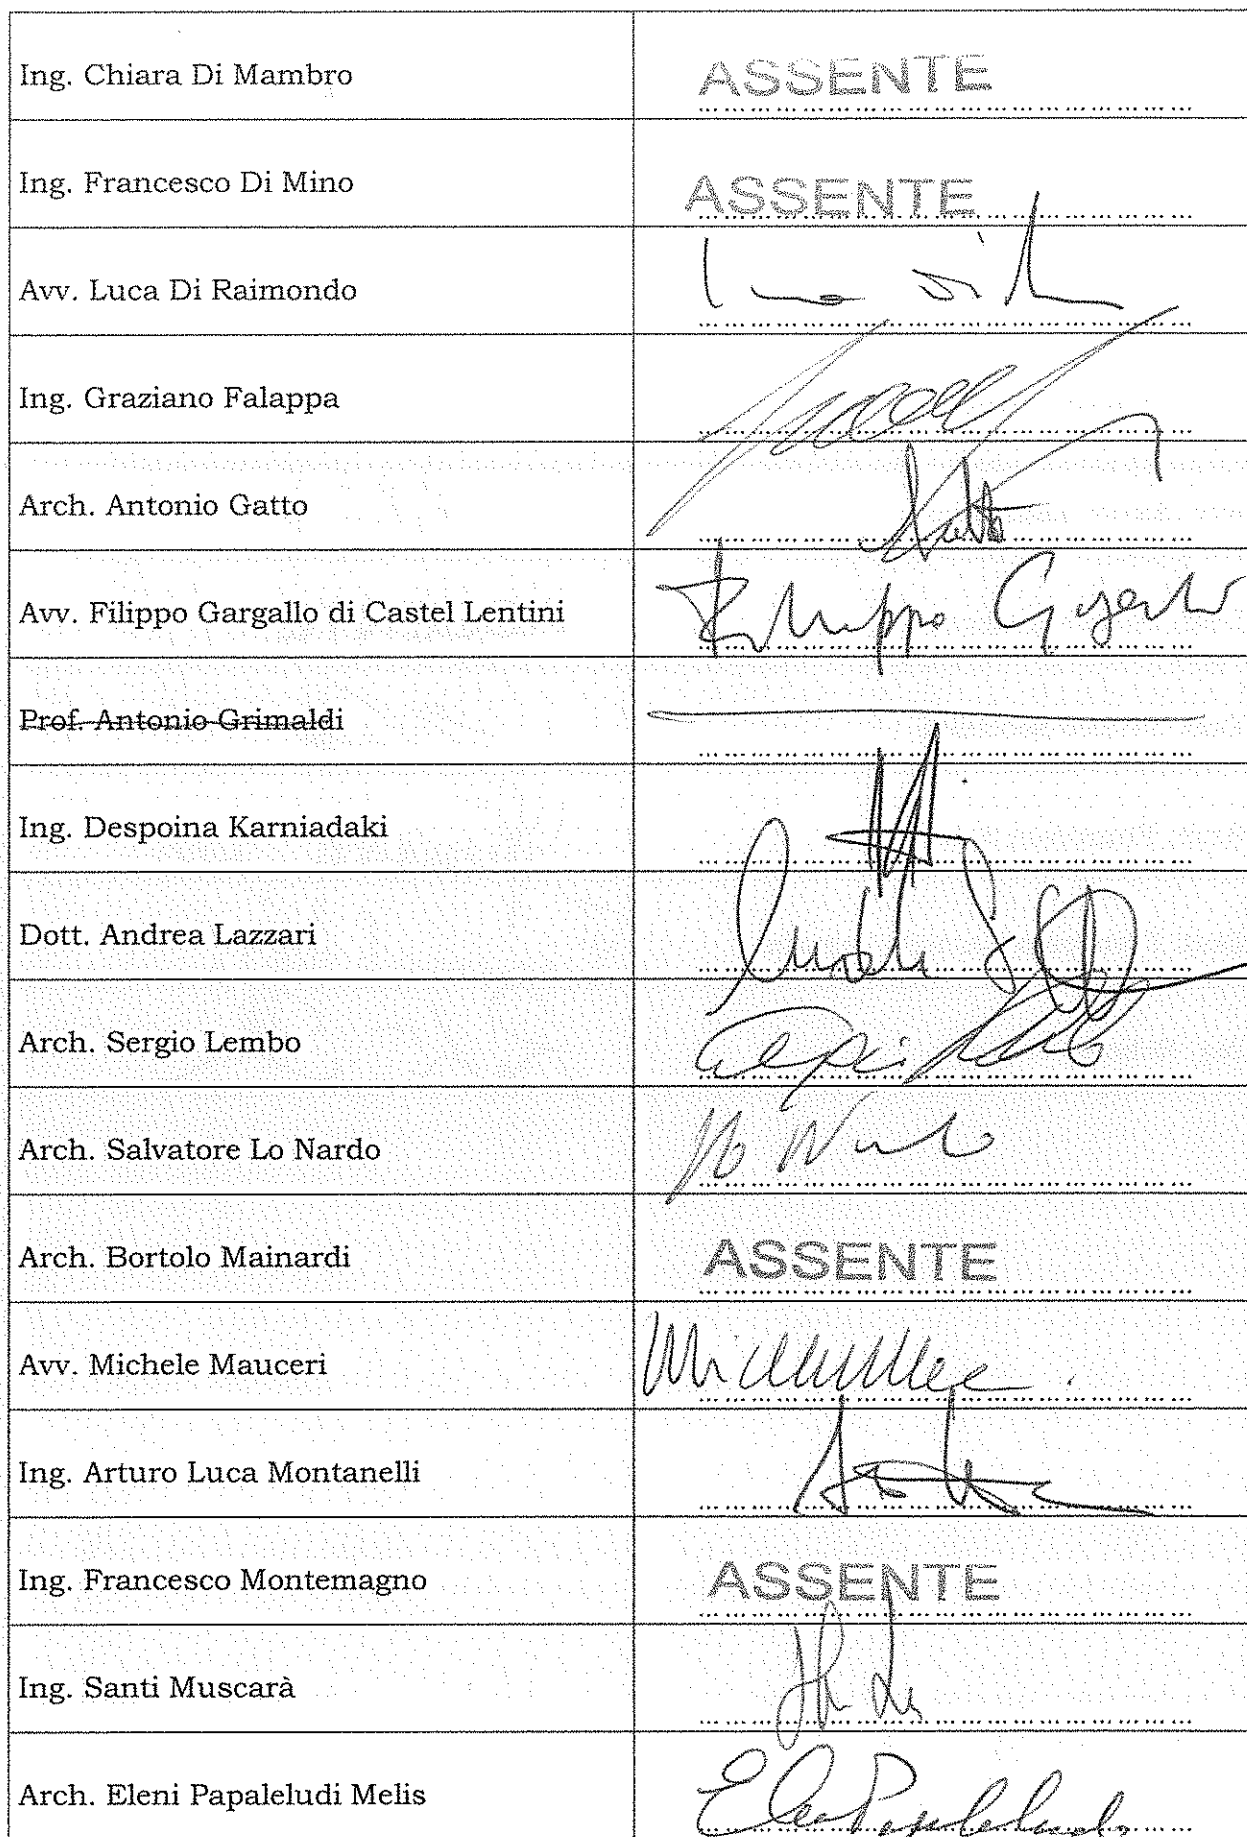 Ing. Chiara Di Mambro ASSENTE
Ing. Francesco Di Mino ASSENTE
Avv. Luca Di Raimondo
Ing. Graziano Falappa
Arch. Antonio Gatto Gatto
Avv. Filippo Gargallo di Castel Lentini Filippo Gargallo
Prof. Antonio Grimaldi
Ing. Despoina Karniadaki
Dott. Andrea Lazzari
Arch. Sergio Lembo
Arch. Salvatore Lo Nardo Lo Nardo
Arch. Bortolo Mainardi ASSENTE
Avv. Michele Mauceri
Ing. Arturo Luca Montanelli
Ing. Francesco Montemagno ASSENTE
Ing. Santi Muscarà
Arch. Eleni Papaleludi Melis